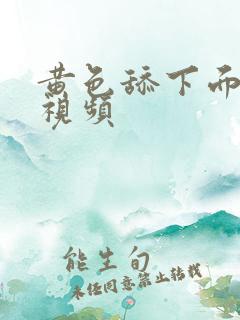 黄色舔下面
视频
能生旬
未经同意禁止转载